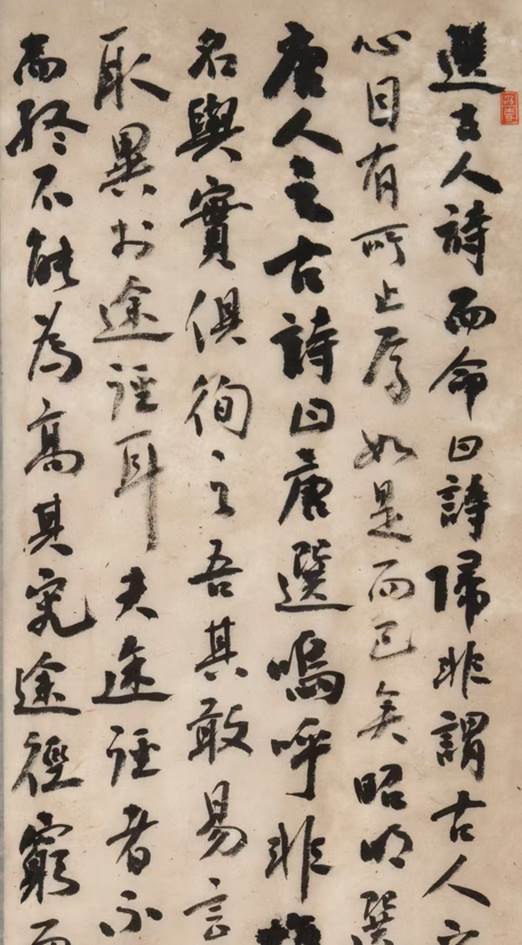 選古人詩而命曰詩歸非謂古人
心目有所止焉如是而已矣昭明選
唐人之古詩曰唐選嗚呼非
名與實俱徇之吾其敢易言
取異於途徑耳夫途徑者不
而終不能為高其究途徑窮而